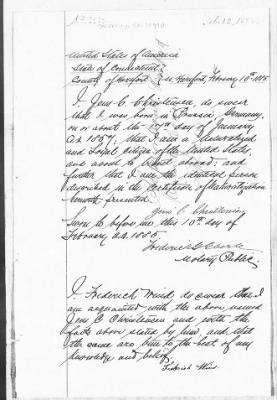 United States of America
State of Connecticut
County of Hartford ss. Hartford, February 10th 1885
I, Jens C. Christensen, do swear
that I was born in Germany,
on or about the day of January
A.D. 1857; that I am a Naturalized
and Loyal Citizen of the United States,
and about to travel abroad; and
further that I am the identical person
described in the Certificate of Naturalization
herewith presented.
Jens C. Christensen
Sworn to before me this 10th day of
February A.D. 1885
Frederick
Notary Public.
I, Frederick Wind, do swear that I
am acquainted with the above named
Jens C Christensen and with the
facts above stated by him, and that
the same are true to the best of my
knowledge and belief.
Frederick Wind